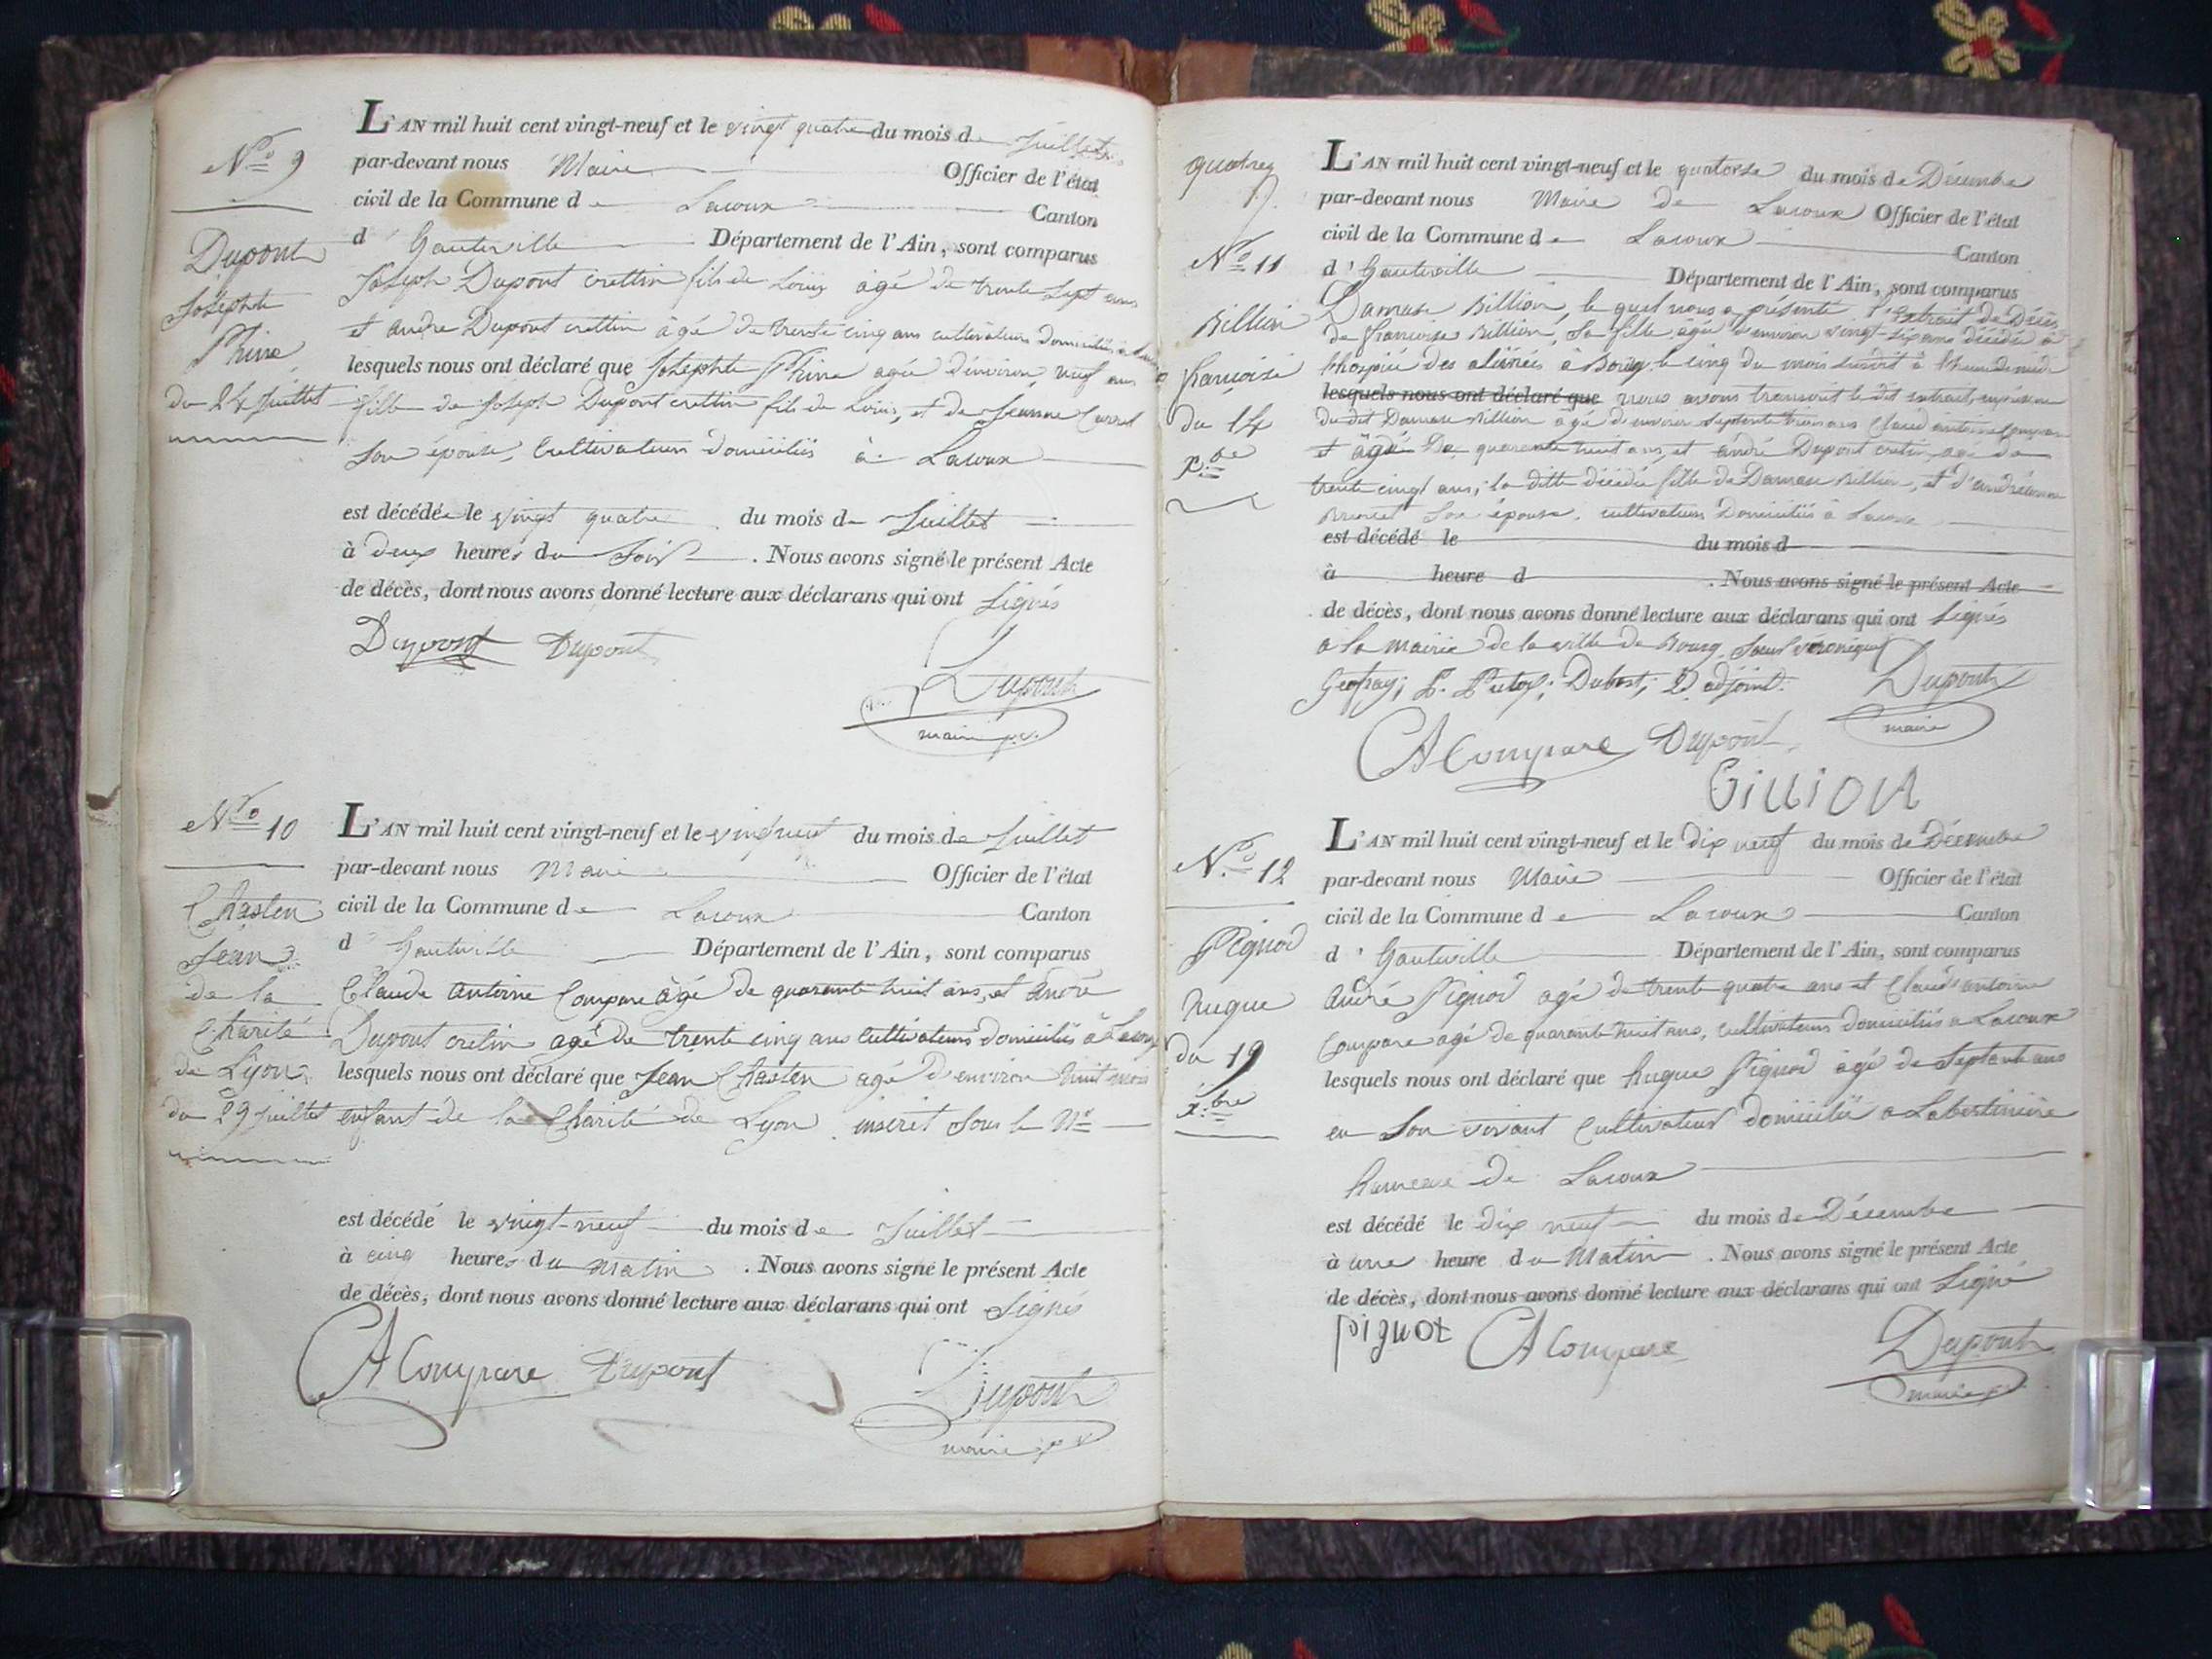 N.º 9
Dupont
Josephte
Phine
du 24 Juillet
L'AN mil huit cent vingt-neuf et le vingt quatre du mois de Juillet
par-devant nous Maire Officier de l'état
civil de la Commune de Lacoux Canton
d'hauteville Département de l'Ain, sont comparus
Joseph Dupont crettin fils de Louis agé de trente sept ans
et andre Dupont crettin âgé de trente cinq ans cultivateurs domiciliés à
lesquels nous ont déclaré que Josephte Phine agée d'environ neuf ans
fille de Joseph Dupont crettin fils de Louis, et de Jeanne
Son épouse, Cultivateurs domiciliés à Lacoux
est décédée le vingt quatre du mois de Juillet
à deux heures du Soir. Nous avons signé le présent Acte
de décès, dont nous avons donné lecture aux déclarans qui ont Signés
Dupont Dupont
Dupont
maire
N.º 10
Chasten
Jean
de la
Charité
de Lyon
du 29 Juillet
L'AN mil huit cent vingt-neuf et le vingt neuf du mois de Juillet
par-devant nous Maire Officier de l'état
civil de la Commune de Lacoux Canton
d'hauteville Département de l'Ain, sont comparus
Claude antoine Compare âgé de quarante huit ans, et André
Dupont cretin agé de trente cinq ans Cultivateurs domiciliés à Lacoux
lesquels nous ont déclaré que Jean Chasten agé d'environ huit mois
enfant de la Charité de Lyon inscrit Sous le Nº
est décédé le vingt-neuf du mois de Juillet
à cinq heures du matin. Nous avons signé le présent Acte
de décès, dont nous avons donné lecture aux déclarans qui ont Signés
CA Compare Dupont
Dupont
maire
quatre
N.º 11
Billion
françoise
du 14
x.bre
L'AN mil huit cent vingt-neuf et le quatorse du mois de Décembre
par-devant nous Maire de Lacoux Officier de l'état
civil de la Commune de Lacoux Canton
d'hauteville Département de l'Ain, sont comparus
Damase Billion, le quel nous a présenté l'Extrait de Décès
de francoise Billion, Sa fille agée d'environ vingt-six ans décédée à
l'hospice des aliénées à Bourg le cinq du mois
lesquels nous ont déclaré que nous avons transcrit le dit extrait
du dit Damase Billion agé d'environ septante trois ans Claud antoine Compare
et âgé De quarante huit ans, et andré Dupont cretin, agé de
trente cinq ans; la ditte décédée fille de Damase Billion, et d'
Son épouse, cultivateurs Domiciliés à Lacoux
est décédé le du mois d
à heure d . Nous avons signé le présent Acte
de décès, dont nous avons donné lecture aux déclarans qui ont Signés
a la mairie de la ville de Bourg, Sœur véronique
adjoint. Dupont
maire
CA Compare Dupont
Billion
N.º 12
Pignod
hugue
du 19
x.bre
L'AN mil huit cent vingt-neuf et le dix neuf du mois de Décembre
par-devant nous Maire Officier de l'état
civil de la Commune de Lacoux Canton
d'hauteville Département de l'Ain, sont comparus
André Pignod agé de trente quatre ans et Claude antoine
Compare agé de quarante huit ans, cultivateurs domiciliés a Lacoux
lesquels nous ont déclaré que hugue Pignod âgé de Septante ans
en Son vivant Cultivateur domicilié a Labertinière
hameau de Lacoux
est décédé le dix neuf du mois de Décembre
à une heure du Matin. Nous avons signé le présent Acte
de décès, dont nous avons donné lecture aux déclarans qui ont Signé
pignot CA Compare Dupont
maire